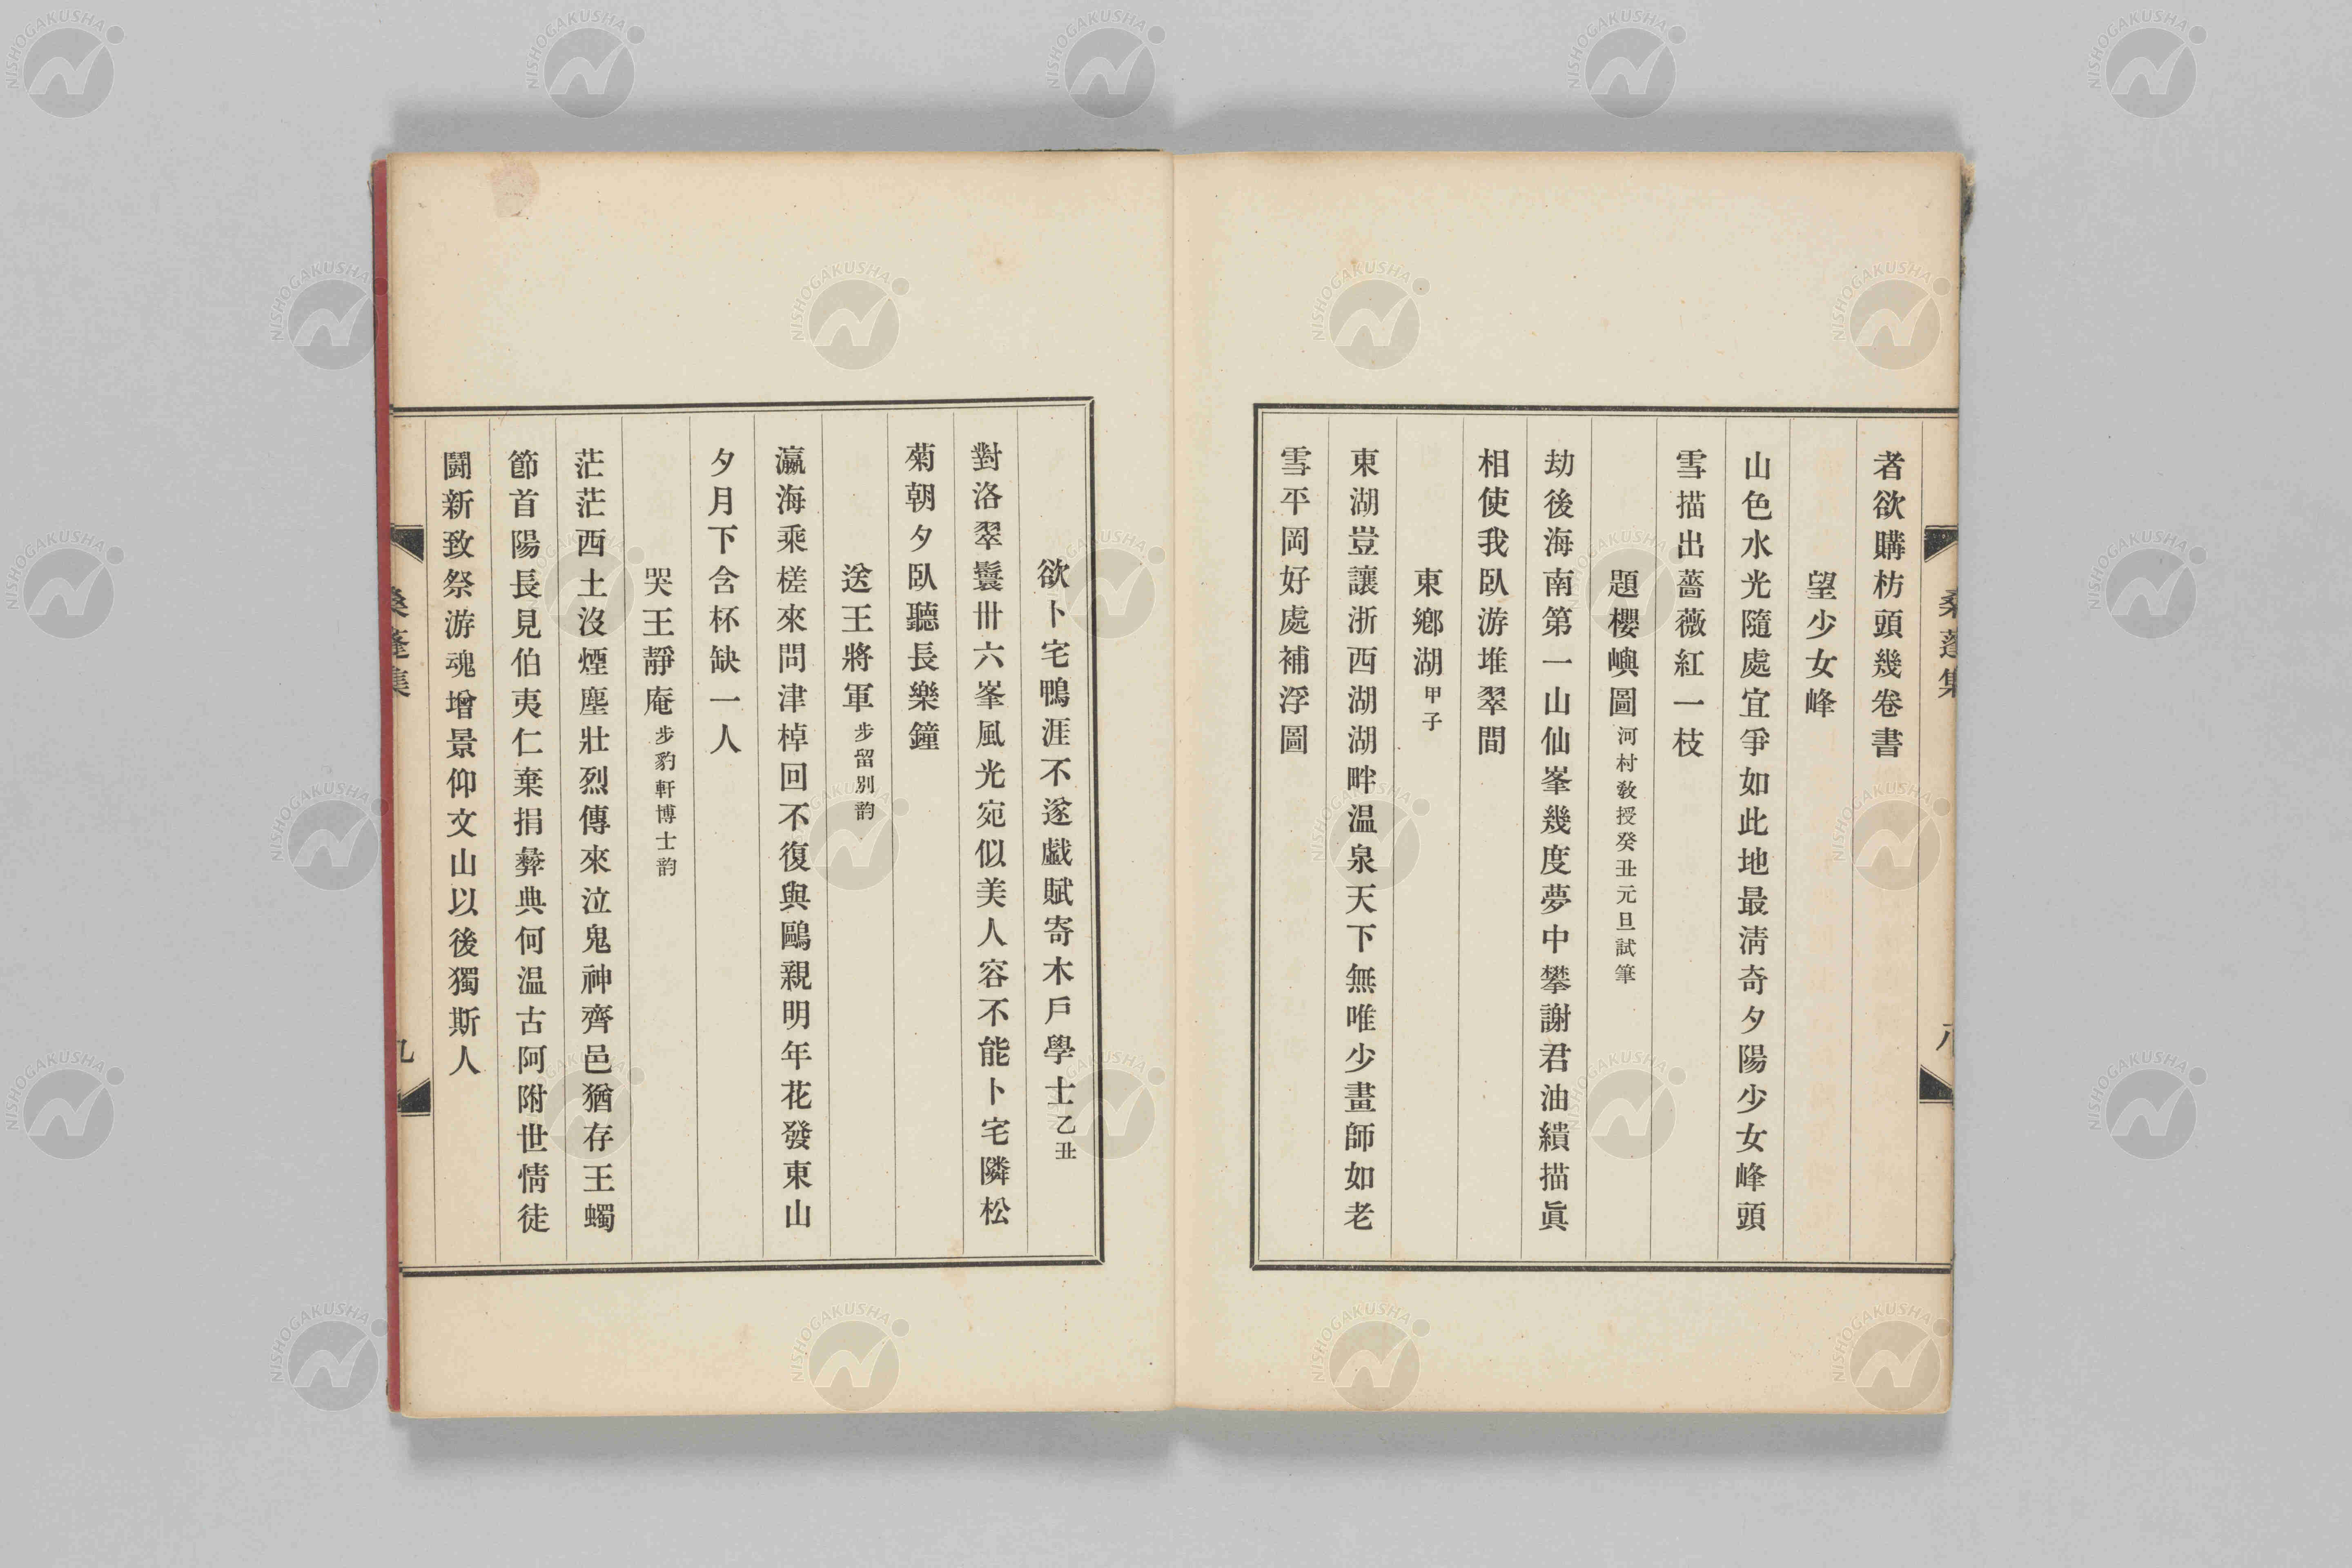 者欲購枋頭幾卷書
望少女峰
山色水光隨處宜爭如此地最淸奇夕陽少女峰頭
雪描出薔薇紅一枝
題櫻嶼圖河村敎授癸丑元旦試筆
劫後海南第一山仙峯幾度夢中攀謝君油繢描眞
相使我臥游堆翠間
東鄕湖甲子
東湖豈讓浙西湖湖畔温泉天下無唯少畫師如老
雪平岡好處補浮圖
桑蓬集
八
欲卜宅鴨涯不遂戱賦寄木戶學士乙丑
對洛翠鬟卅六峯風光宛似美人容不能卜宅隣松
菊朝夕臥聽長樂鐘
送王將軍步留別韵
瀛海乘槎來問津棹回不復與鷗親明年花發東山
夕月下含杯缺一人
哭王靜庵步豹軒博士韵
茫茫西土沒煙塵壯烈傳來泣鬼神齊邑猶存王蠋
節首陽長見伯夷仁棄捐彝典何温古阿附世情徒
鬪新致祭游魂增景仰文山以後獨斯人
桑蓬集
九
NISHOGAKUSHA